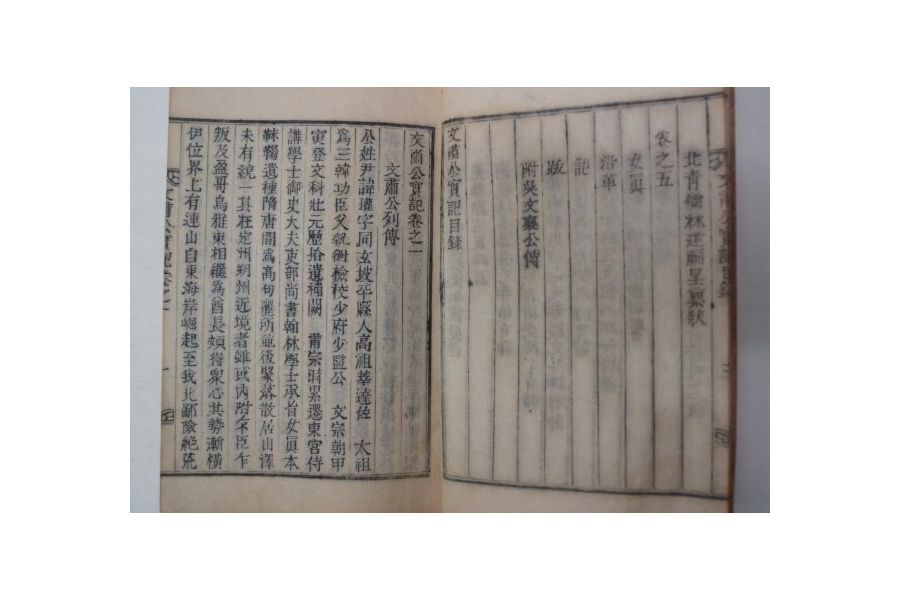 北青儒林建祠呈稟狀
卷之五
女眞
沿革
記
跋
附吳文襄公傳
文肅公實記目錄
文肅公實記卷之一
文肅公列傳
公姓尹諱瓘字同玄坡平縣人高祖莘達佐 太祖
爲三韓功臣父執衡檢校少府少監公 文宗朝甲
寅登文科壯元歷拾遺補闕 肅宗時累遷東宮侍
講學士御史大夫吏部尚書翰林學士承旨女眞本
靺鞨遺種隋唐間爲高句麗所並後聚落散居山澤
未有統一其在定州朔州近境者雖或內附乍臣乍
叛及盈哥烏雅束相繼爲酋長頗得衆心其勢漸橫
伊位界上有連山自東海岸崛起至我北鄙險絶荒
文肅公實記卷之一